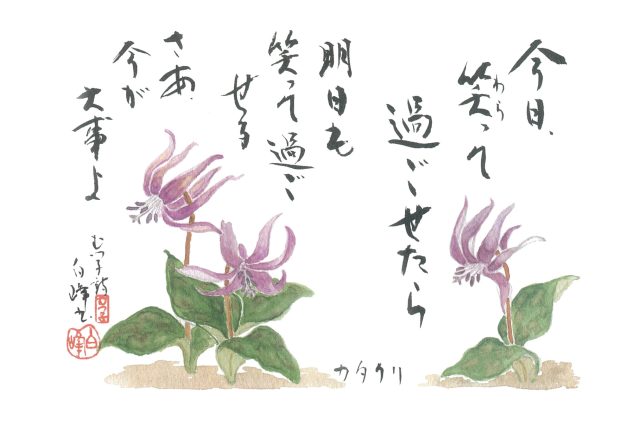 今日、
笑って
わら
過ごせたら
明日も
笑って過ご
せる
さあ、
今が
大事よ
むつ子詩
白峰書
カタクリ